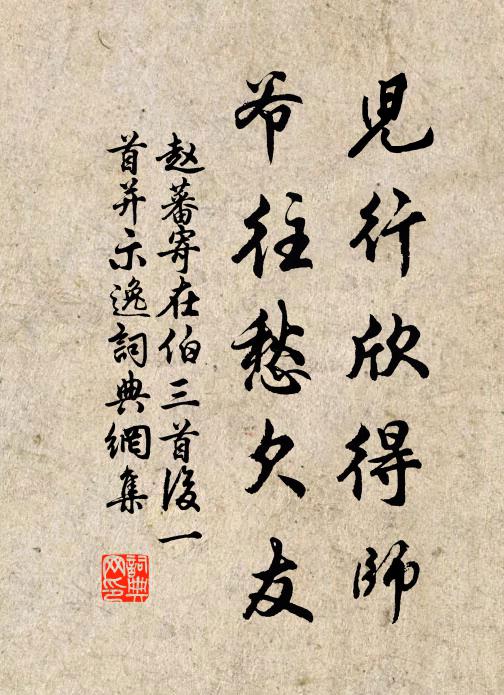 兒行欣得師
爷往愁欠友
赵蕃寄在伯三首後一
首并示逸詞典網集
詞典网印